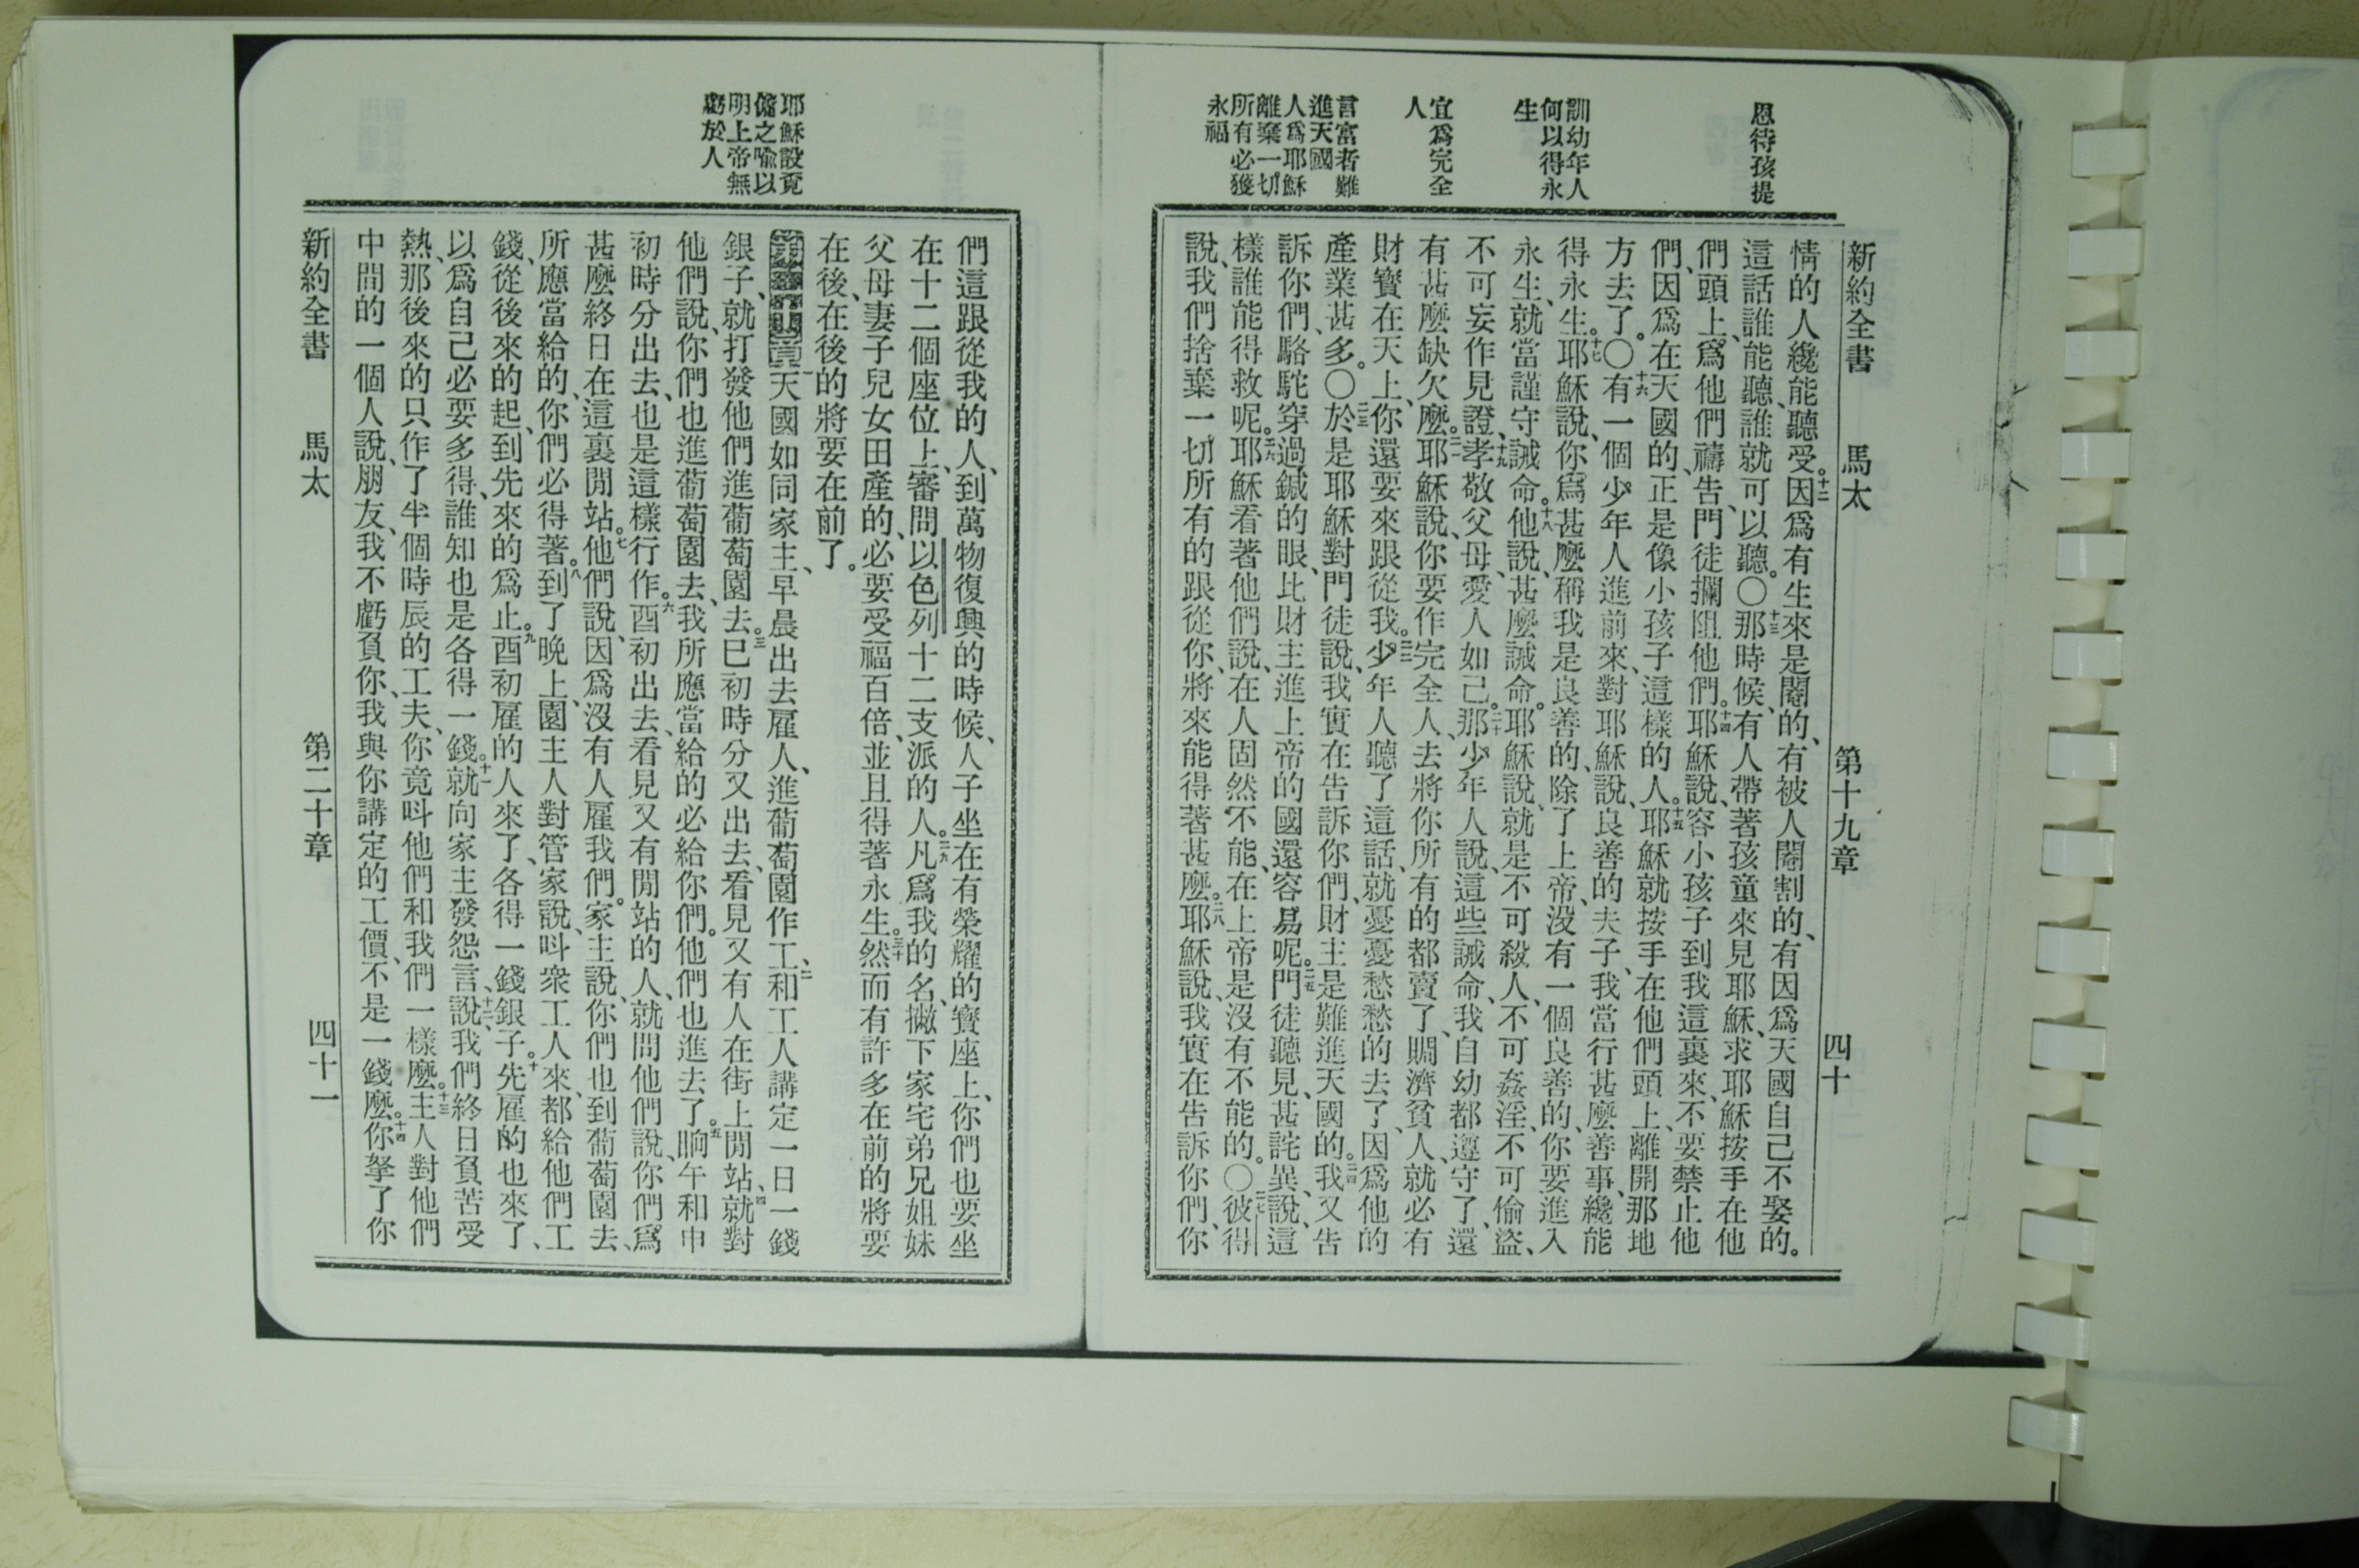 恩待孩提
訓幼年人
何以得永
生
宜爲完全
人
言富者難
進天國
人爲耶穌
離棄一切
所有必獲
永福
新約全書 馬太 第十九章 四十
情的人纔能聽受。十二因爲有生來是閹的、有被人閹割的、有因爲天國自己不娶的。
這話誰能聽、誰就可以聽。〇十三那時候、有人帶著孩童來見耶穌、求耶穌按手在他
們頭上、爲他們禱告、門徒攔阻他們。十四耶穌說、容小孩子到我這裏來、不要禁止他
們、因爲在天國的、正是像小孩子、這樣的人。十五耶穌就按手在他們頭上、離開那地
方去了。〇十六有一個少年人進前來、對耶穌說、良善的夫子、我當行甚麼善事、纔能
得永生。十七耶穌說、你爲甚麼稱我是良善的、除了上帝、沒有一個良善的、你要進入
永生、就當謹守誡命。十八他說、甚麼誡命。耶穌說、就是不可殺人、不可姦淫、不可偷盜、
不可妄作見證、十九孝敬父母、愛人如己。二十那少年人說、這些誡命、我自幼都遵守了、還
有甚麼缺欠麼。二一耶穌說、你要作完全人、去將你所有的都賣了、賙濟貧人、就必有
財寶在天上、你還要來跟從我。二二少年人聽了這話、就憂憂愁愁的去了、因爲他的
產業甚多。〇二三於是耶穌對門徒說、我實在告訴你們、財主是難進天國的。二四我又告
訴你們、駱駝穿過鍼的眼、比財主進上帝的國還容易呢。二五門徒聽見、甚詫異、說、這
樣誰能得救呢。二六耶穌看著他們說、在人固然不能、在上帝是沒有不能的。〇二七彼得
說、我們捨棄一切所有的跟從你、將來能得著甚麼。二八耶穌說、我實在告訴你們、你
耶穌設覓
傭之喻以
明上帝無
虧於人
們這跟從我的人、到萬物復興的時候、人子坐在有榮耀的寶座上、你們也要坐
在十二個座位上、審問以色列十二支派的人。二九凡爲我的名、撇下家宅弟兄姐妹
父母妻子兒女田產的、必要受福百倍、並且得著永生。三十然而有許多在前的將要
在後、在後的將要在前了。
第二十章一天國如同家主、早晨出去雇人、進葡萄園作工、二和工人講定一日一錢
銀子、就打發他們進葡萄園去。三巳初時分又出去、看見又有人在街上閒站、四就對
他們說、你們也進葡萄園去、我所應當給的必給你們。他們也進去了。五晌午和申
初時分出去、也是這樣行作。六酉初出去、看見又有閒站的人、就問他們說、你們爲
甚麼終日在這裏閒站。七他們說、因爲沒有人雇我們。家主說、你們也到葡萄園去、
所應當給的、你們必得著。八到了晚上、園主人對管家說、呌衆工人來、都給他們工
錢、從後來的起、到先來的爲止。九酉初雇的人來了、各得一錢銀子。十先雇的也來了、
以爲自己必要多得、誰知也是各得一錢。十一就向家主發怨言、十二說、我們終日負苦受
熱、那後來的只作了半個時辰的工夫、你竟呌他們和我們一樣麼。十三主人對他們
中間的一個人說、朋友、我不虧負你、我與你講定的工價、不是一錢麼。十四你拏了你
新約全書 馬太 第二十章 四十一